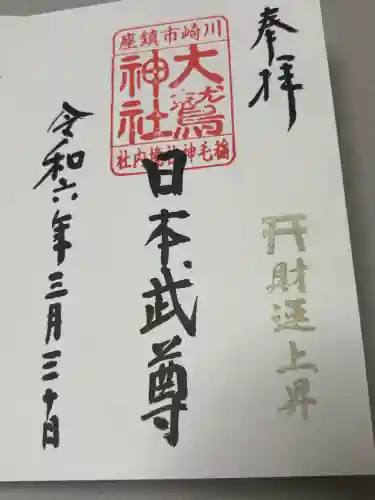 奉拝
⛩財運上昇
川崎市鎮座
大鷲神社
稲毛神社境内社
日本武尊
令和六年三月三十日